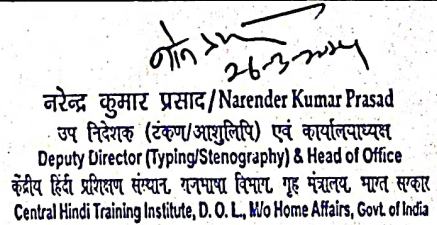 26-3-2024
नरेन्द्र कुमार प्रसाद/Narender Kumar Prasad
उप निदेशक (टंकण/आशुलिपि) एवं कार्यालयाध्यक्ष
Deputy Director (Typing/Stenography) & Head of Office
केंद्रीय हिंदी प्रशिक्षण संस्थान, राजभाषा विभाग, गृह मंत्रालय, भारत सरकार
Central Hindi Training Institute, D. O. L., M/o Home Affairs, Govt. of India